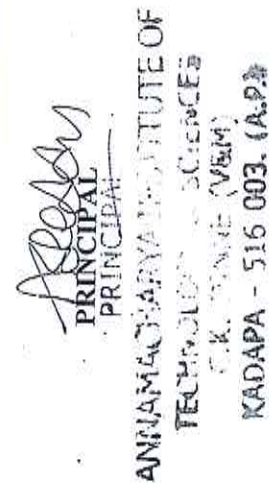 PRINCIPAL
PRINCIPAL
ANNAMACHARYA INSTITUTE OF
TECHNOLOGY SCIENCES
(V&M)
KADAPA - 516 003. (A.P.)